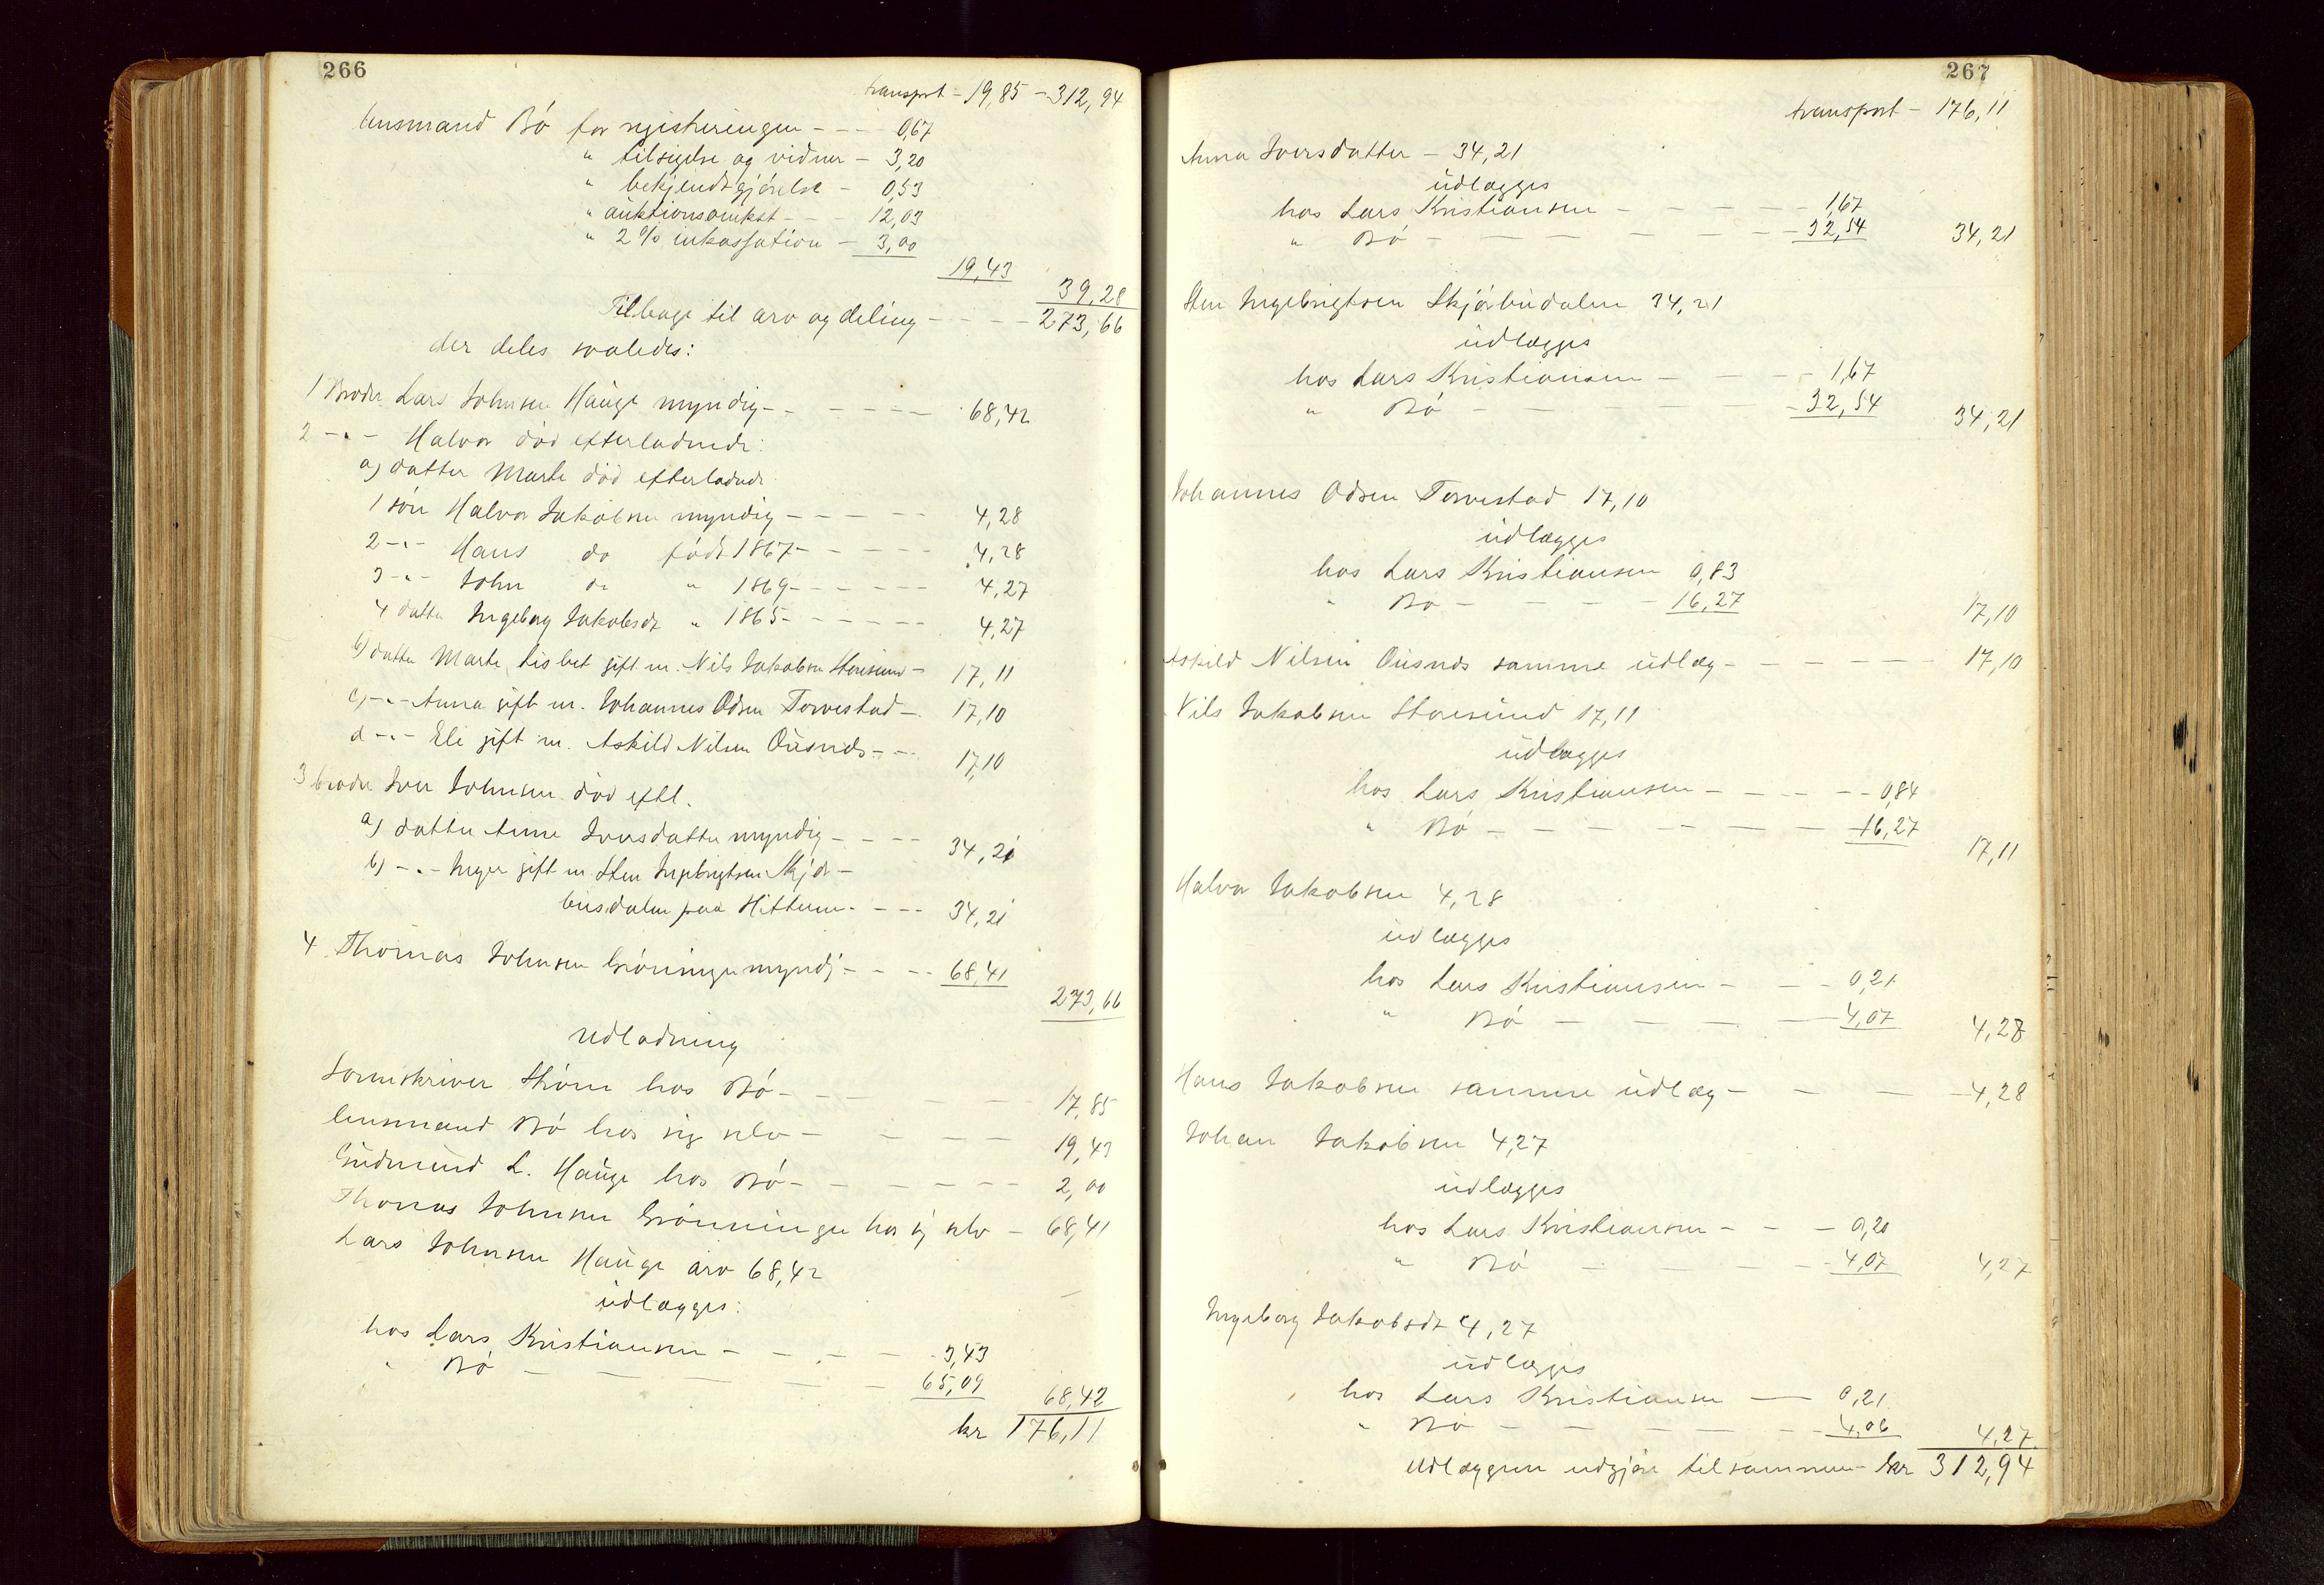 266
transport – 19,85 – 312,94
lensmand Bö for registreringen – – – 0,67
" tilsigelse og vidner – 3,20
" bekjendtgjörelse – 0,53
" auktionsomkost – – – 12,03
" 2 % inkassation – 3,00
19,43
39,28
Tilbage til arv og deling – – – – – 273,66
der deles saaledes:
1 Broder Lars Johnsen Hauge myndig – – – – – – 68,42
2 –"– Halvor död efterladende:
a) datter Marte död efterladende
1 sön Halvor Jakobsen myndig – – – – – 4,28
2 –"– Hans do födt 1867 – – – – – 4,28
3 –"– John do " 1869 – – – – – 4,27
4 datter Ingeborg Jakobsdt " 1865 – – – – – – 4,27
b) datter Marte Lisbet gift m. Nils Jakobsen Storesund – 17,11
c) –"– Anna gift m. Johannes Odsen Torvestad – 17,10
d –"– Eli gift m. Askild Nilsen Öusnes – – 17,10
3 broder Iver Johnsen död eftl.
a) datter Anne Iversdatter myndig – – – – 34,21
b) –"– Inger gift m Sten Ingebrigtsen Skjör–
busdalen paa Hitteren – – – 34,21
4 Thomas Johnsen Gröningen myndig – – – – 68,41
273,66
Udlodning
Sorenskriver Ström hos Bö – – – – – – 17,85
lensmand Bö hos sig selv – – – – – 19,43
Gudmund L. Hauge hos Bö – – – – – – 2,00
Thomas Johnsen Grönningen hos sig selv – 68,41
Lars Johnsen Hauge arv 68,42
udlægges:
hos Lars Kristiansen – – – – – 3,43
" Bö – – – – – – 65,09 68,42
kr 176,11
267
transport – 176,11
Anna Iversdatter – 34,21
udlægges
hos Lars Kristiansen – – – – – – 1,67
" Bö – – – – – – – 32,54 34,21
Sten Ingebrigtsen Skjörbudalen 34,21
udlægges
hos Lars Kristiansen – – – – 1,67
" Bö – – – – – – 32,54 34,21
Johannes Odsen Torvestad 17,10
udlægges
hos Lars Kristiansen 0,83
" Bö – – – – – 16,27 17,10
Askild Nilsen Öusnes samme udlæg – – – – – – 17,10
Nils Jakobsen Storesund 17,11
udlægges
hos Lars Kristiansen – – – – – 0,84
" Bö – – – – – – – 16,27 17,11
Halvor Jakobsen 4,28
udlægges
hos Lars Kristiansen – – – 0,21
" Bö – – – – – 4,07 4,28
Hans Jakobsen samme udlæg – – – – – 4,28
Johan Jakobsen 4,27
udlægges
hos Lars Kristiansen – – – 0,20
" Bö – – – – – 4,07 4,27
Ingeborg Jakobsdt 4,27
udlægges
hos Lars Kristiansen – – 0,21
" Bö – – – – – – 4,06 4,27
Udlæggene udgjör tilsammen – kr 312,94